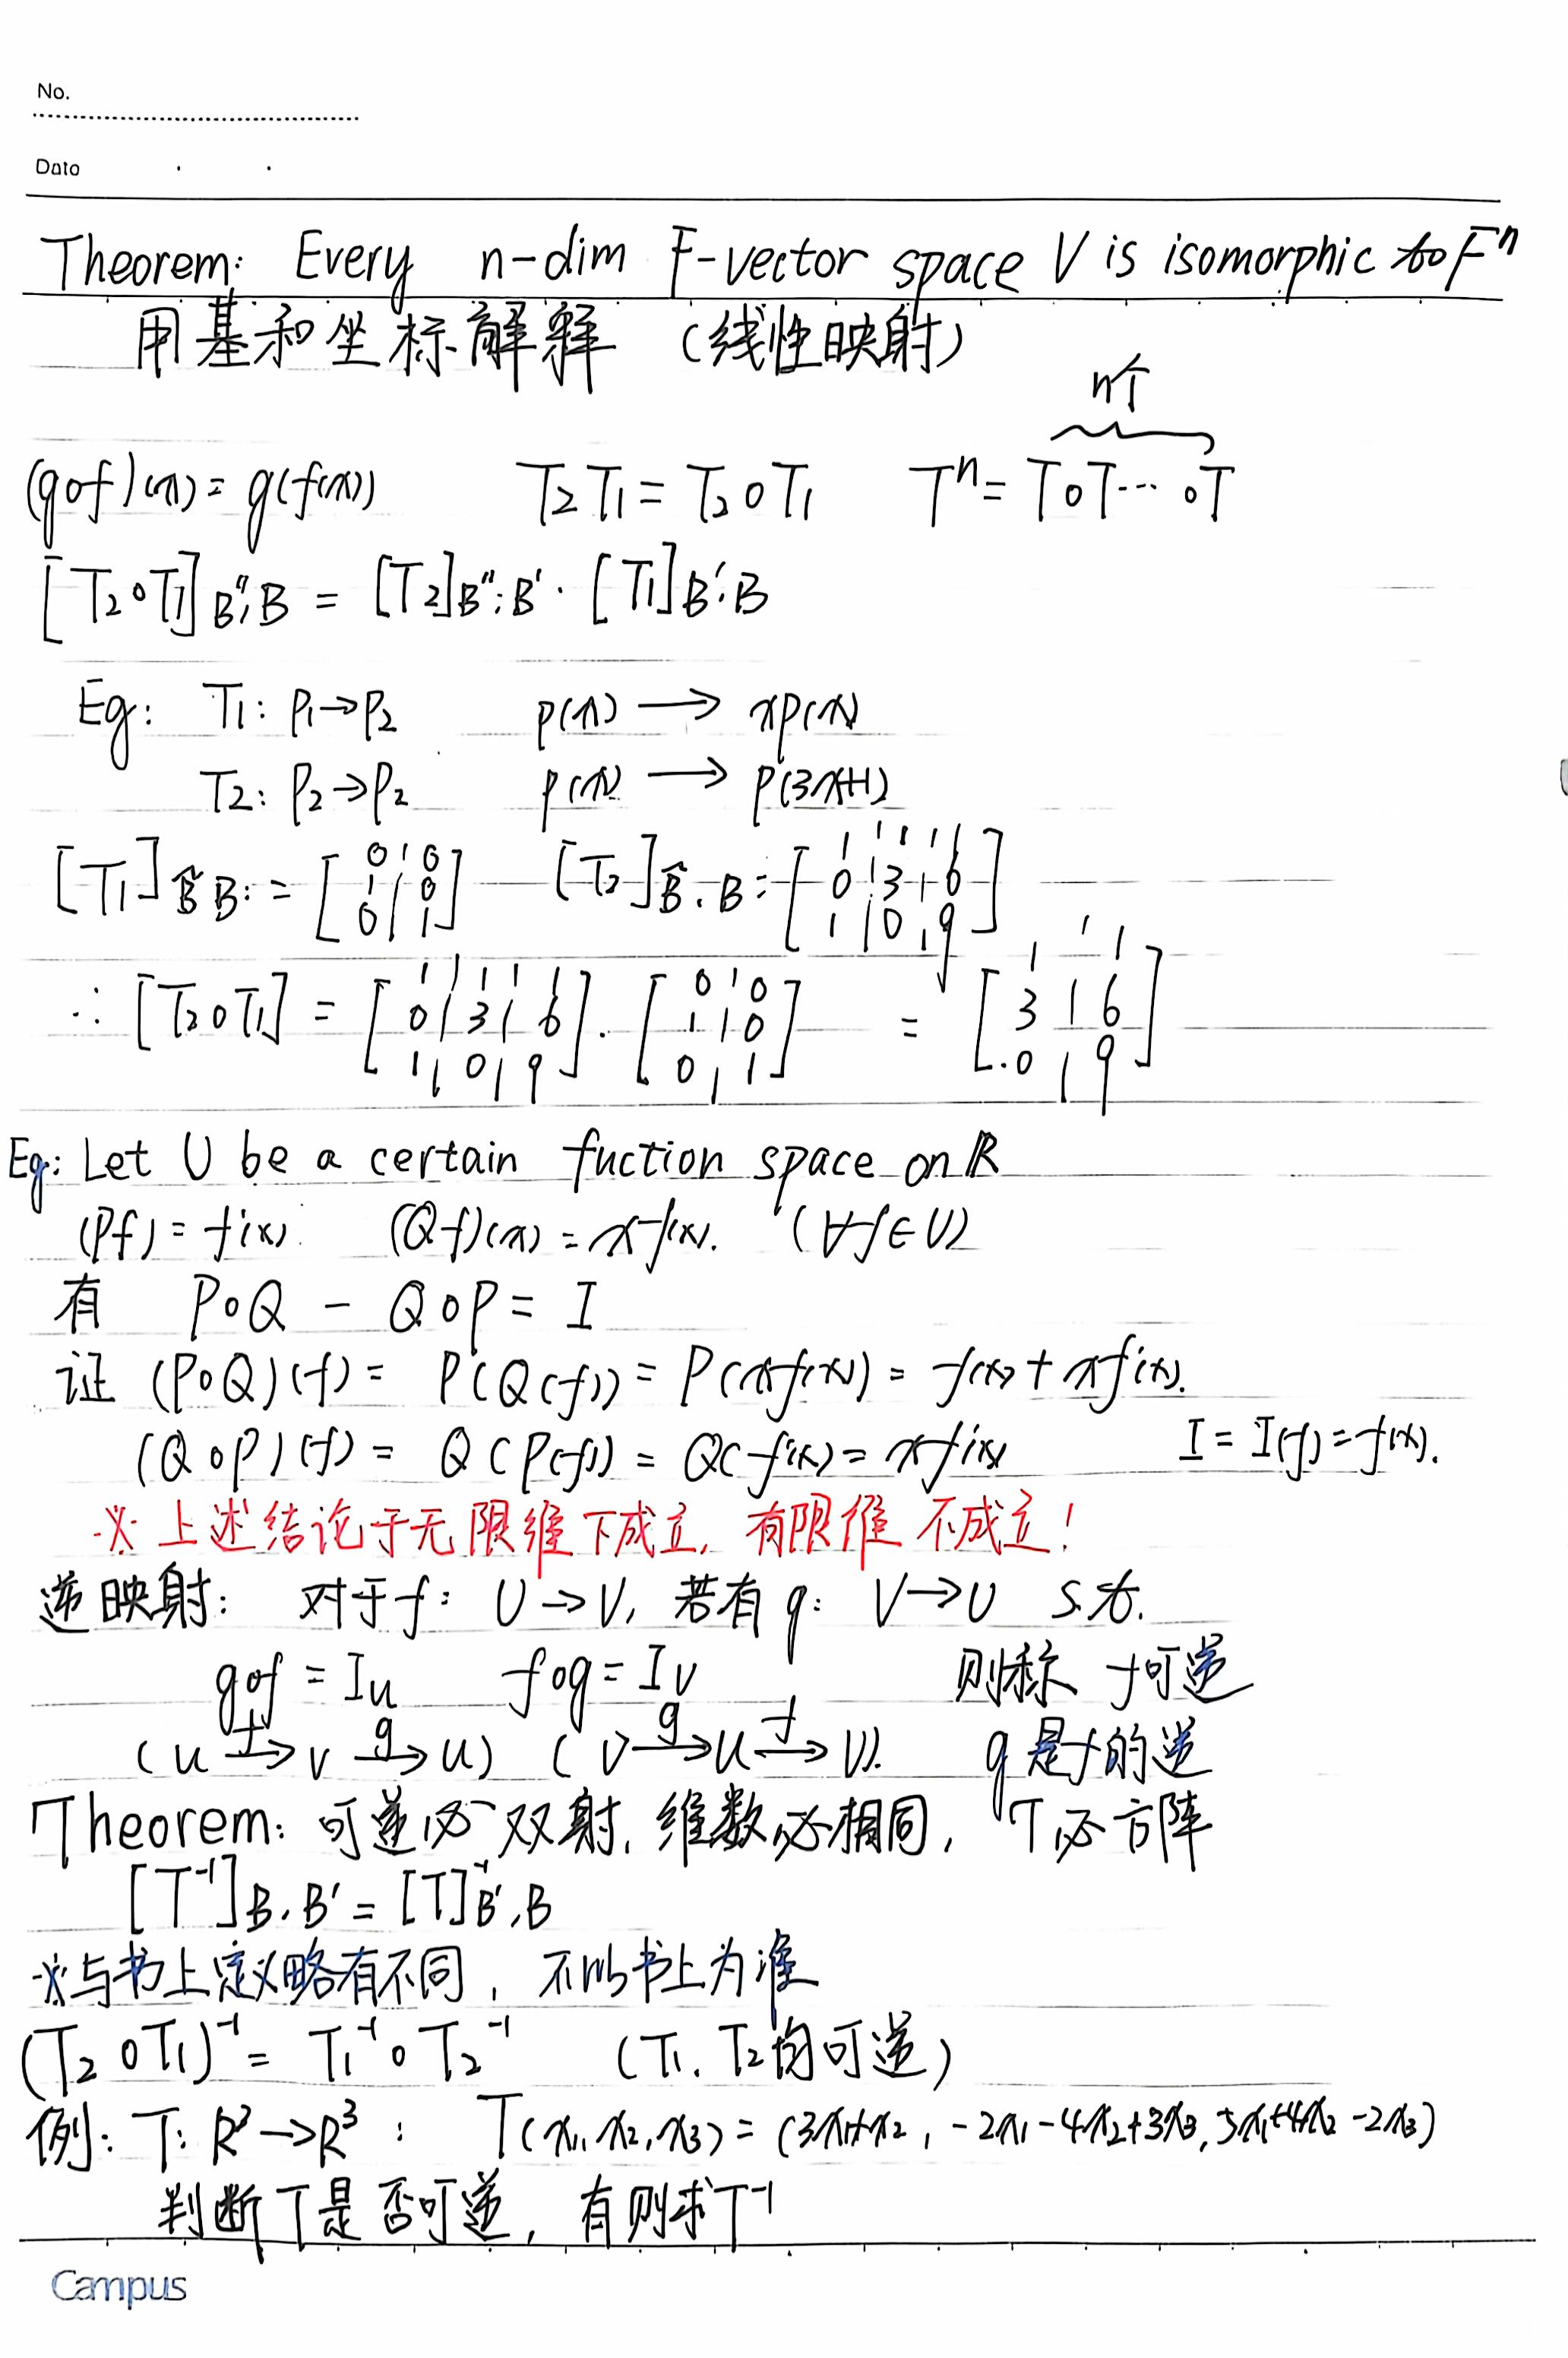 No.
Date
Theorem: Every n-dim F-vector space V is isomorphic to Fⁿ
用基和坐标解释 (线性映射)
n个
(g∘f)(x) = g(f(x)) T₂T₁ = T₂∘T₁ Tⁿ = T∘T⋯∘T
[T₂∘T₁]B'';B = [T₂]B'';B' · [T₁]B';B
Eg: T₁: P₁→P₂ p(x) ⟶ xp(x)
T₂: P₂→P₂ p(x) ⟶ p(3x+1)
[T₁]B̂ B: = [0 | 0; 1 | 0; 0 | 1] [T₂]B̂, B = [1 | 1 | 1; 0 | 3 | 6; 1 | 0 | 9]
∴ [T₂∘T₁] = [1 | 1 | 1; 0 | 3 | 6; 1 | 0 | 9] · [0 | 0; 1 | 0; 0 | 1] = [1 | 1; 3 | 6; 0 | 9]
Eg: Let U be a certain fuction space on ℝ
(Pf) = f'(x) (Qf)(x) = xf(x). (∀f∈U)
有 P∘Q - Q∘P = I
证 (P∘Q)(f) = P(Q(f)) = P(xf(x)) = f(x) + xf'(x).
(Q∘P)(f) = Q(P(f)) = Q(f'(x) = xf'(x) I = I(f) = f(x).
※ 上述结论于无限维下成立, 有限维不成立!
逆映射: 对于f: U→V, 若有g: V→U s.t.
g∘f = Iu f∘g = Iv 则称 f可逆
(u f→ v g→ u) (v g→ u f→ v). g是f的逆
Theorem: 可逆必双射, 维数必相同, T必方阵
[T⁻¹]B,B' = [T]⁻¹B',B
※与书上定义略有不同, 不以书上为准
(T₂∘T₁)⁻¹ = T₁⁻¹∘T₂⁻¹ (T₁, T₂均可逆)
例: T: R³→R³ : T(x₁,x₂,x₃) = (3x₁+x₂, -2x₁-4x₂+3x₃, 5x₁+4x₂-2x₃)
判断T是否可逆, 有则求T⁻¹
Campus